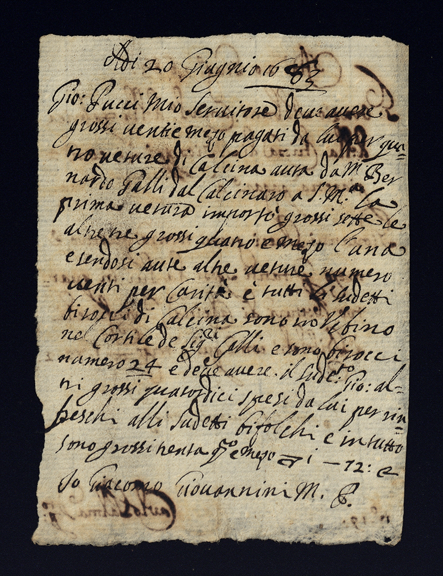 Adi 20 Giugno 1683
Gio: Pucci Mio Servitore deve avere
grossi venti e mezo pagati da lui per qua-
tro veture di Calcina auta da Mr. Ber
nardo Galli dal Calcinaro a S. Ma. la
prima vetura importò grossi sette le
altre tre grossi quatro e mezo l'una
esendosi aute altre veture numero
venti per Carità e tutti li sudetti
birocci di Calcina sono in Urbino
nel Cortile de Sigri Galli e sono birocci
numero 24 e deve avere il sudto Gio: al-
tri grossi quatordici spesi da lui per rin-
freschi alli sudetti bifolchi e in tutto
sono grossi trenta e mezo i – 12:
Io Giacomo Giovannini M. P.